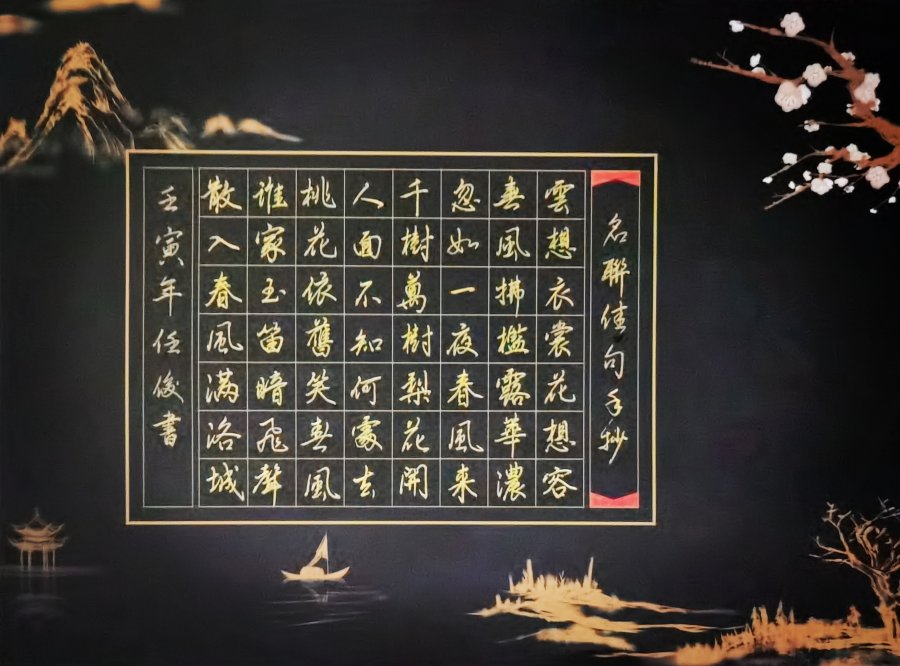 名聯佳句手抄
雲想衣裳花想容
春風拂檻露華濃
忽如一夜春風来
千樹萬樹梨花開
人面不知何處去
桃花依舊笑春風
誰家玉笛暗飛聲
散入春風滿洛城
壬寅年任俊書